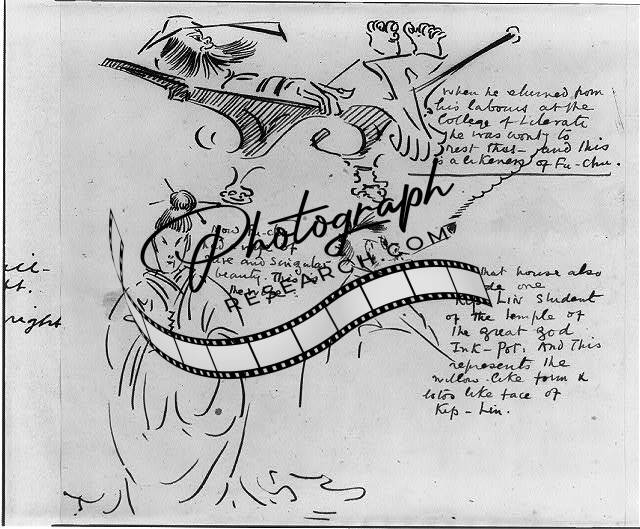 When he returned from
his labours at the
College of Literati
he was wont to
rest thus - and this
is a likeness of Fu-Chu.
of
and singular
beauty. This is
Photograph
RESEARCH.COM
that house also
one
Kip Lin student
of the temple of
the great god
Ink-Pot. And this
represents the
willow-like form &
lotos like face of
Kip-Lin.
right